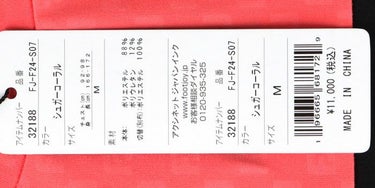 品番 FJ-F24-S07
アイテムナンバー
32188
カラー
シュガーコーラル
サイズ
チェスト(cm) 92-98
身長(cm) 166-172
M
素材
本体 ポリエステル 88%
ポリウレタン 12%
切替(別布) ポリエステル 100%
アクシネット ジャパンインク
お客様相談ダイヤル
0120-935-325
www.footjoy.jp
品番 FJ-F24-S07
アイテムナンバー
32188
カラー
シュガーコーラル
サイズ
M
1 96665 68172 9
¥11,000(税込)
MADE IN CHINA